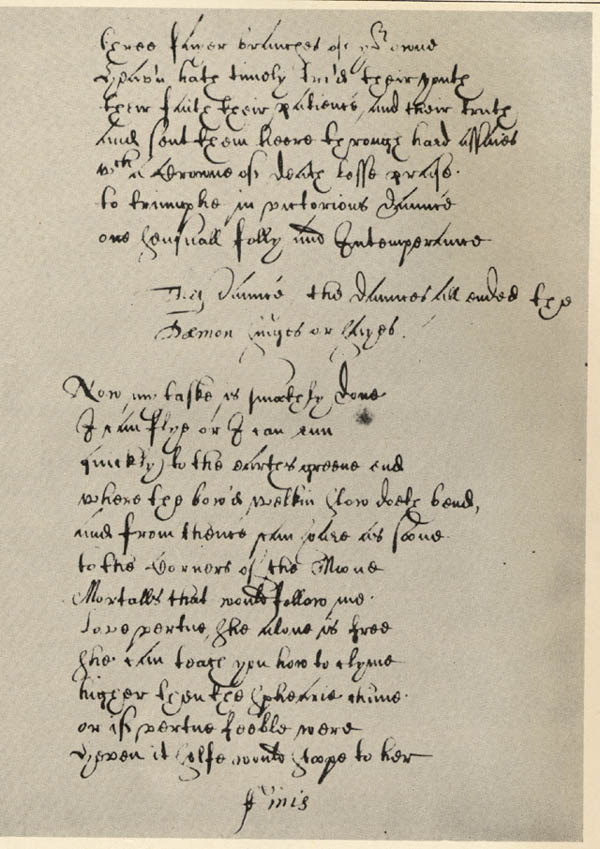 three faier branches of yor owne
Heav'n hath timely tri'd their youth
their faith their patience, and their truth
and sent them heere through hard assaies
wth a Crowne of death lesse praise.
to triumphe in victorious daunce
ore sensuall folly and Intemperance
They daunce, the daunces all ended the
Dæmon singes or sayes.
Now my taske is smoothly done
I can flye or I can run
quickly to the earthes greene end
where the bow'd welkin slow doeth bend,
and from thence can soare as soone
to the Corners of the Moone
Mortalls that would follow me.
love vertue, she alone is free
she can teach you how to clyme
higher then the sphearie chime.
or if vertue feeble were
Heven it selfe would stoope to her
finis